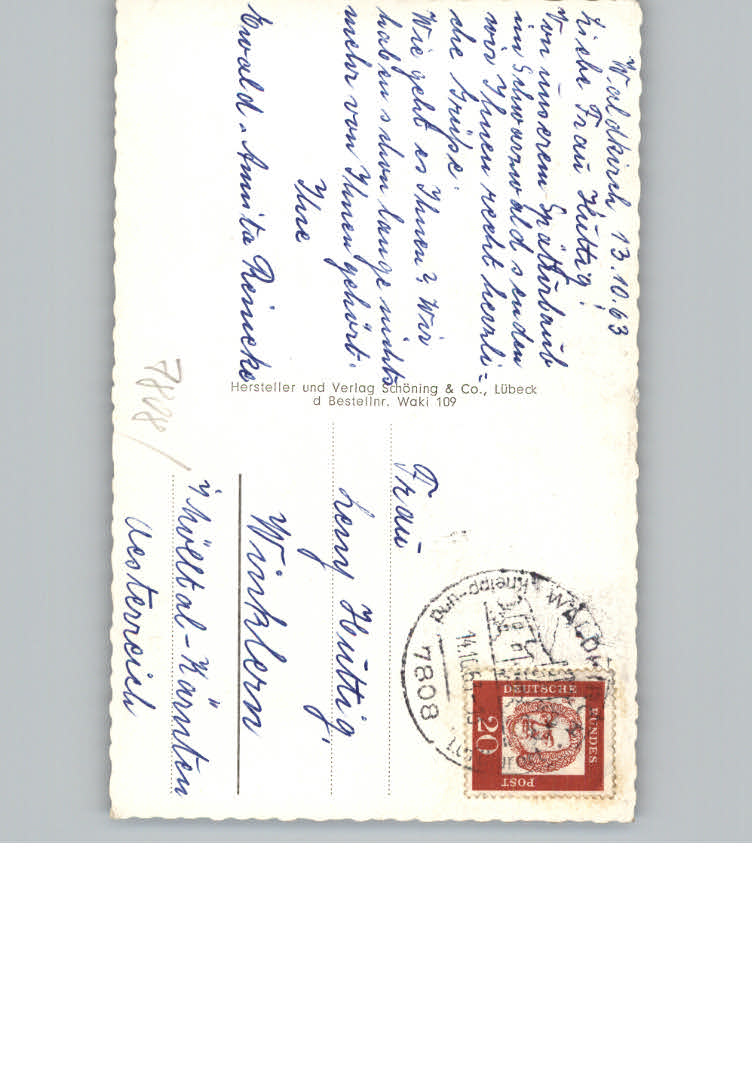 Waldkirch, 13.10.63
Liebe Frau Hüttig!
Von unserem Spätürlaub
im Schwarzwald senden
wir Ihnen recht herzli-
che Grüße.
Wie geht es Ihnen? Wir
haben schon lange nichts
mehr von Ihnen gehört.
Ihre
Ewald u. Annita Reincke
Hersteller und Verlag Schöning & Co., Lübeck
d Bestellnr. Waki 109
Frau
Leny Hüttig,
Winklern
i/Mölltal-Kärnten
Oesterreich
7808
14.10.63
Kneipp-und
WALDKIRCH
DEUTSCHE
BUNDES
POST
20